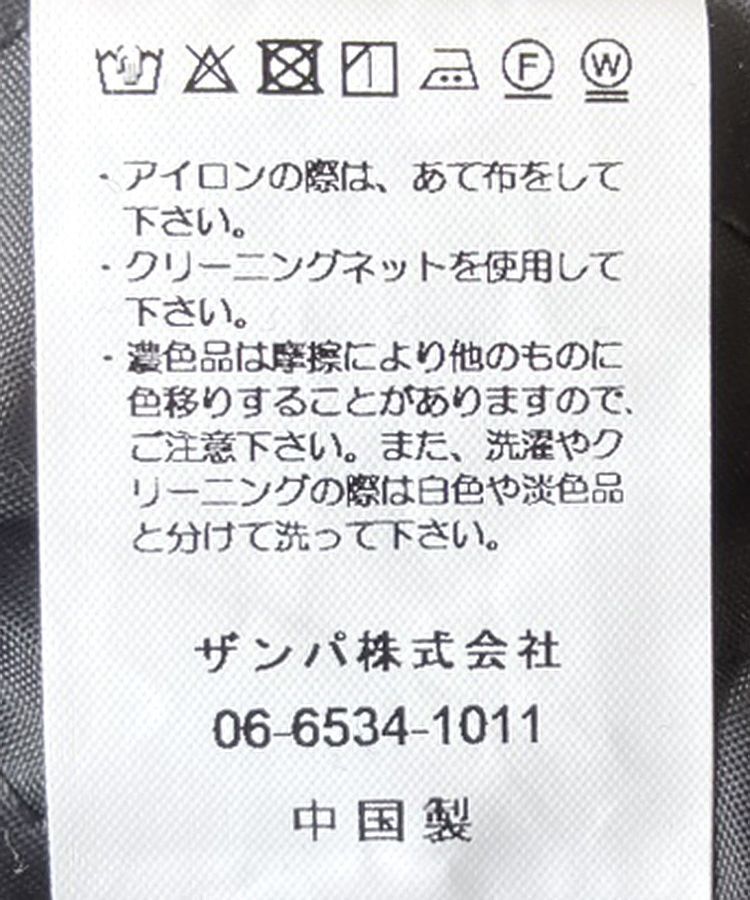 F W
・アイロンの際は、あて布をして
下さい。
・クリーニングネットを使用して
下さい。
・濃色品は摩擦により他のものに
色移りすることがありますので、
ご注意下さい。また、洗濯やク
リーニングの際は白色や淡色品
と分けて洗って下さい。
ザンパ株式会社
06-6534-1011
中国製